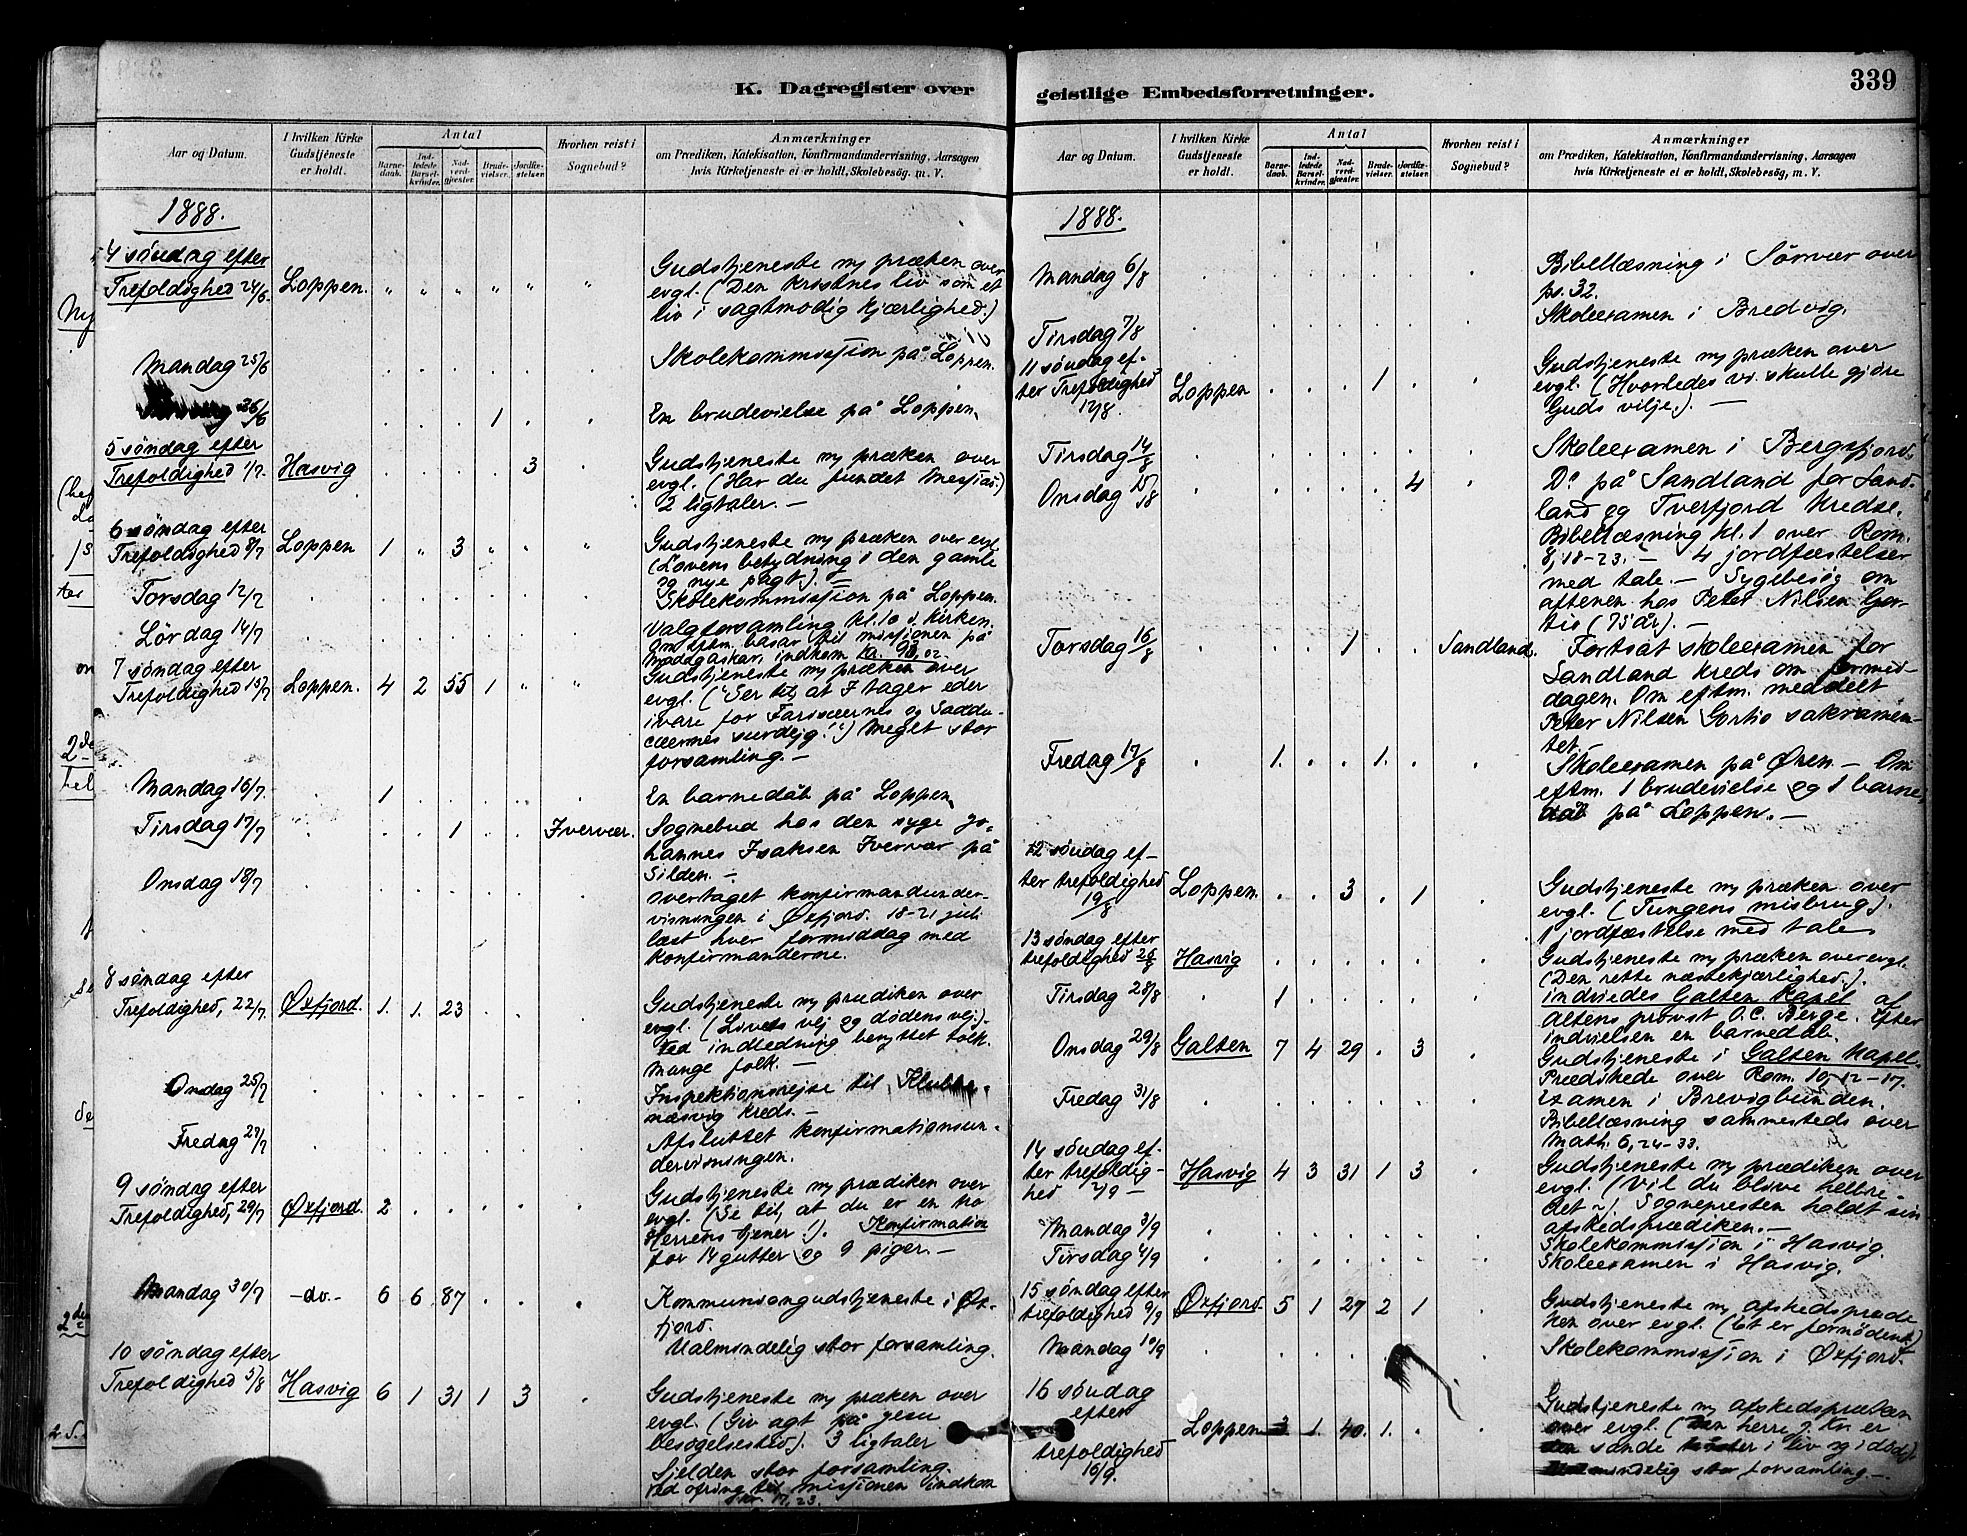 339
K. Dagregister over geistlige Embedsforretninger.
Aar og Datum.
I hvilken Kirke Gudstjeneste er holdt.
Antal
Barnedaab.
Indledede Barselkvinder.
Nadverdgjæster.
Brudevielser.
Jordfæstelser.
Hvorhen reist i Sognebud?
Anmærkninger
om Prædiken, Katekisation, Konfirmandundervisning, Aarsagen
hvis Kirketjeneste ei er holdt, Skolebesøg, m. V.
1888.
4 søndag efter
Trefoldighed 24/6. Loppen. " " " " " "
Gudstjeneste m/ præken over
evgl. (Den kristnes liv som et
liv i sagtmodig kjærlighed.)
Mandag 25/6 . . . . . .
Skolekommissjon på Loppen.
26/6 . . . 1 . .
En brudevielse på Loppen.
5 søndag efter
Trefoldighed 1/7. Hasvig . . . . 3 .
Gudstjeneste m/ præken over
evgl. (Har du fundet Messias.)
2 ligtaler. —
6 søndag efter
Trefoldighed 8/7 Loppen 1 " 3 " " "
Gudstjeneste m/ præken over evgl.
(Lovens betydning i den gamle
og nye pagt.) —
Torsdag 12/7 . . . . . .
Skolekommissjon på Loppen.
Lördag 14/7 . . . . . .
Valgforsamling kl. 10 i kirken.
Om eftm. basar til missjonen på
Madagaskar, indkom ka. 90,02.
7 søndag efter
Trefoldighed 15/7 Loppen. 4 2 55 1 " "
Gudstjeneste m/ præken over
evgl. ("Ser til, at I tager eder
ivare for Farisæernes og Saddu-
cæernes surdejg!") Meget stor
forsamling. —
Mandag 16/7. . 1 . . . . .
En barnedåb på Loppen.
Tirsdag 17/7 . . . 1 . . Ivervær.
Sognebud hos den syge Jo-
hannes Isaksen Ivervær på
Silden. —
Onsdag 18/7 . . . . . .
Overtaget konfirmandunder-
visningen i Øxfjord. 18-21 juli
læst hver formiddag med
konfirmanderne.
8 søndag efter
Trefoldighed, 22/7. Øxfjord. 1. 1. 23 . . .
Gudstjeneste m/ prædiken over
evgl. (Livets vej og dødens vej.).
Ved indledning benyttet tolk.
Mange folk. —
Onsdag 25/7 . . . . . .
Inspektionsrejse til
næsvig kreds. —
Fredag 27/7 . . . . . .
Afsluttet konfirmationsun-
dervisningen.
9 søndag efter
Trefoldighed, 29/7 Øxfjord. 2 . . . . .
Gudstjeneste m/ prædiken over
evgl. (Se til, at du er en tro
Herrens tjener!). Konfirmation
for 14 gutter og 9 piger. —
Mandag 30/7 —do.— 6 6 87 . . .
Kommunjongudstjeneste i Øx-
fjord.
Ualmindelig stor forsamling.
10 søndag efter
Trefoldighed 5/8 Hasvig 6 1 31 1 3 .
Gudstjeneste m/ præken over
evgl. (Giv agt på Jesu
besøgelsestid). 3 ligtaler
Sjelden stor forsamling.
Ved ofring til missjonen indkom
kr. 17,23.
1888.
Mandag 6/8 . . . . . .
Bibellæsning i Sørvær over
ps. 32.
Tirsdag 7/8 . . . . . .
Skoleexamen i Bredvig.
11 søndag ef-
ter Trefoldighed
12/8. Loppen . . . 1 . .
Gudstjeneste m/ præken over
evgl. (Hvorledes vi skulle gjøre
Guds vilje.). —
Tirsdag 14/8 . . . . . .
Skoleexamen i Bergsfjord.
Onsdag 15/8 . . . . 4 .
Do på Sandland for Sand-
land og Tverfjord Kredse.
Bibellæsning kl. 1 over Rom.
8,18-23. — 4 jordfæstelser
med tale. — Sygebesøg om
aftenen hos Peter Nilsen Gor-
tio (75 år). —
Torsdag 16/8 . . . 1 . . Sandland.
Fortsat skoleexamen for
Sandland kreds om formid-
dagen. Om eftm. meddelt
Peter Nilsen Gortio sakramen-
tet. —
Fredag 17/8 . 1. . . 1. . .
Skoleexamen på Øxen — Om
eftm. 1 brudevielse og 1 barne-
dåb på Loppen. —
12 søndag ef-
ter trefoldighed
19/8 Loppen. . . 3 . 1 .
Gudstjeneste m/ præken over
evgl. (Tungens misbrug).
1 jordfæstelse med tale.
13 søndag efter
trefoldighed 26/8 Hasvig . . . . . .
Gudstjeneste m/ præken over evgl.
(Den rette næstekjærlighed.).
Tirsdag 28/8 . 1 . . . . .
Indviedes Galten Kapel af
Altens provst O. C. Berge. Efter
indvielsen en barnedåb.
Onsdag 29/8 Galten 7 4 29 . 3 .
Gudstjeneste i Galten Kapel.
Prædikede over Rom. 10,12-17.
Fredag 31/8 . . . . . .
Examen i Brevigbunden.
Bibellæsning sammesteds over
Math. 6,24-33.
14 søndag ef-
ter trefoldig-
hed 2/9 — Hasvig 4 3 31 1 3 .
Gudstjeneste m/ prædiken over
evgl. (Vil du blive helbre-
det ~). Sognepresten holdt sin
afskedsprædiken. —
Mandag 3/9 . . . . . .
Skolekommissjon i Hasvig.
Tirsdag 4/9 . . . . . .
Skoleexamen i Hasvig.
15 søndag efter
trefoldighed 9/9 Øxfjord. 5 1 27 2 1 .
Gudstjeneste m/ afskedspræde
ken over evgl. (Et er fornødent.)
Mandag 10/9 . . . . . .
Skolekommissjon i Øxfjord.
16 søndag
efter
trefoldighed
16/9. Loppen 3 1. 40. 1. . .
Gudstjeneste m/ afskedspræken
over evgl. (Den herre J. Kr. er
den sande trøster i liv og i død.)
Ualmindelig stor forsamling —.